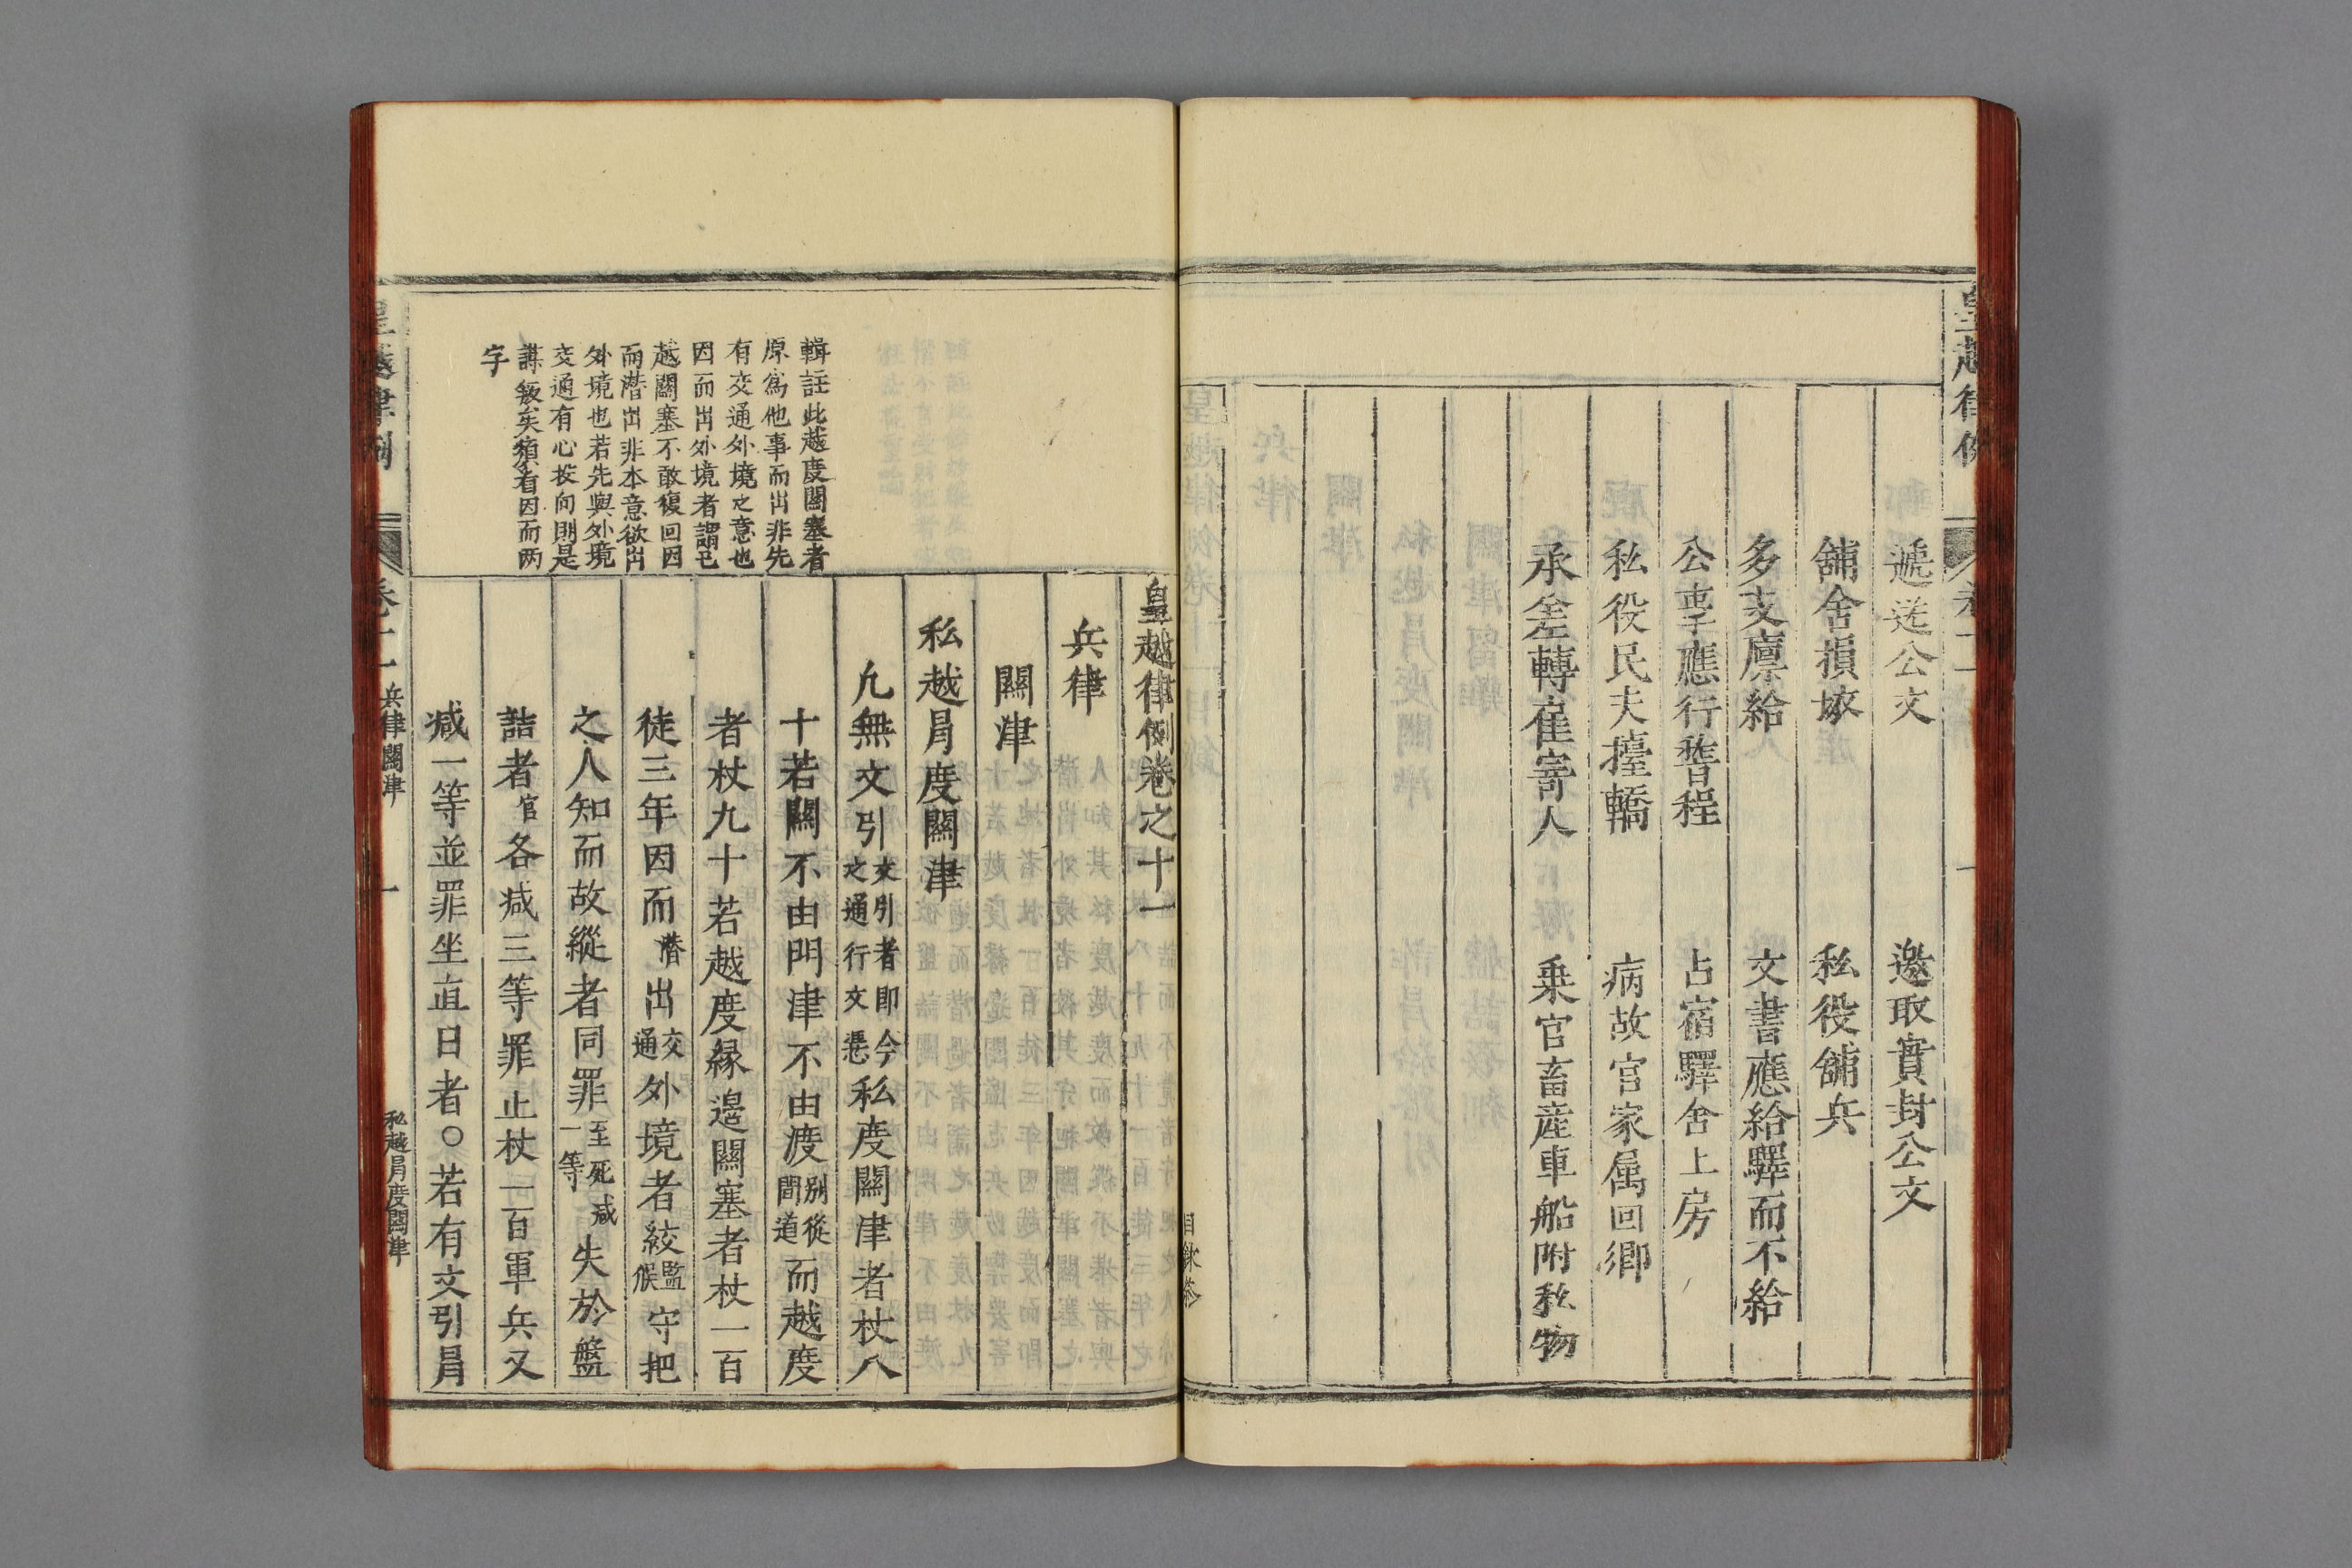 遞送公文 邀取實封公文
舖舍損壞 私役舖兵
多支廩給 文書應給驛而不給
公事應行稽程 占宿驛舍上房
私役民夫擡轎 病故官家属回鄉
承差轉雇寄人 乗官畜產車船附私物
皇越律例卷之十一
兵律
關津
私越冐度關津
凢無文引文引者即今之通行文憑私度關津者杖八
十若關不由門津不由渡别從間道而越度
者杖九十若越度緣邉關塞者杖一百
徒三年因而潛出交通外境者絞監候守把
之人知而故縱者同罪至死减一等失於盤
詰者官各减三等罪止杖一百軍兵又
减一等並罪坐直日者○若有文引冐
輯註此越度關塞者
原為他事而出非先
有交通外境之意也
因而出外境者謂已
越關塞不敢復回因
而潛出非本意欲出
外境也若先與外境
交通有心投向則是
謀叛矣須看因而兩
字
皇越律例 卷十一 兵律關津 一 私越冐度關津